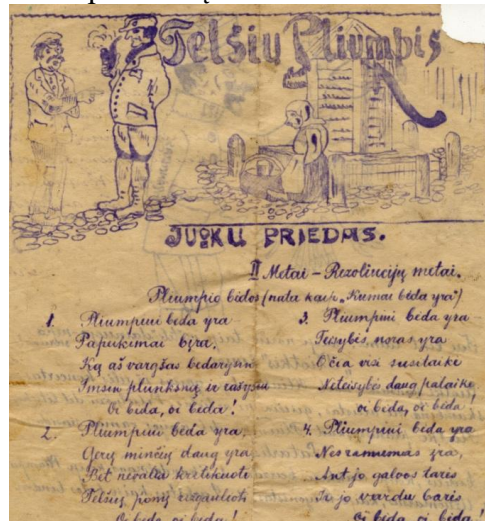 Telšių Pliumpis
JUOKŲ PRIEDAS.
II Metai – Rezoliucijų metai.
Pliumpio bėdos (nata kaip „Kumai bėda yra")
1. Pliumpiui bėda yra
Papeikimai byra,
Ką aš vargšas bedarysiu
Imsiu plunksną ir rašysiu
Oi bėda, oi bėda!
2. Pliumpiui bėda yra,
Gerų minčių daug yra
Bet nevalia kritikuoti
Telšių ponų
Oi bėda, oi bėda!
3. Pliumpiui bėda yra
Teisybės noras yra
O čia visi susitaikė
Neteisybę daug palaikė,
oi bėda, oi bėda!
4. Pliumpiui bėda yra
Neszanumas yra,
Ant jo galvos taries
Ir jo vardu baries
Oi bėda, oi bėda!